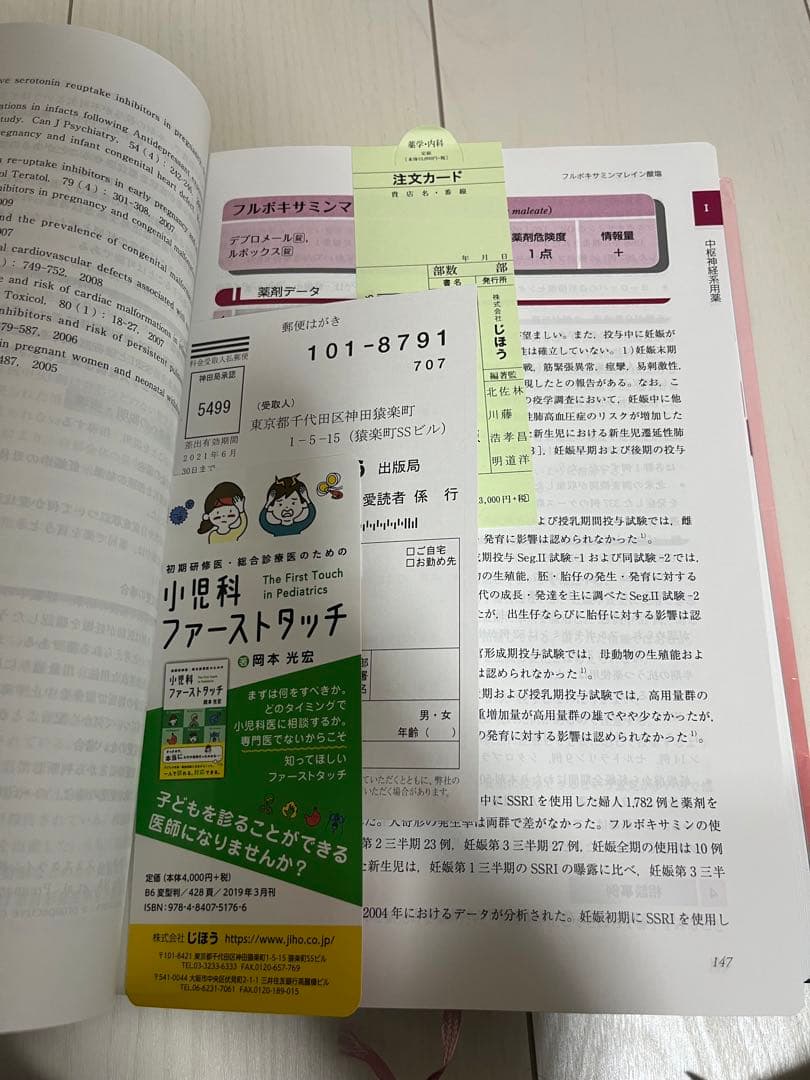 ve serotonin reuptake inhibitors in pregnancy
ations in infacts following Antidepressant
study. Can J Psychiatry, 54(4): 242-246,
regnancy and infant congenital heart defect
n re-uptake inhibitors in early pregnancy and
ol Teratol. 79(4): 301-308, 2007
ibitors in pregnancy and congenital
009
nd the prevalence of congenital
07
al cardiovascular defects associated
): 749-752, 2008
e and risk of cardiac malformations in
Toxicol, 80(1): 18-27, 2007
nhibitors and risk of persistent
79-587, 2006
in pregnant women and neonatal
487, 2005
薬学・内科
定価
[本体13,000円+税]
注文カード
貴店名・番線
年 月 日
部数 部
書名 発行所
株式会社 じほう
編著監
北佐林
川藤
浩孝昌
明道洋
3,000円+税)
フルボキサミンマレイン酸塩
フルボキサミンマ
maleate)
デプロメール錠,
ルボックス錠
薬剤危険度
1点
情報量
+
I
中枢神経系用薬
II 薬剤データ
望ましい。また,投与中に妊娠が
性は確立していない。1)妊娠末期
戦,筋緊張異常,痙攣,易刺激性,
現したとの報告がある。なお,こ
の疫学調査において,妊娠中に他
性肺高血圧症のリスクが増加した
た新生児における新生児遷延性肺
3].妊娠早期および後期の投与
よび授乳期間投与試験では,雌
・発育に影響は認められなかった1)。
期投与Seg.II試験-1および同試験-2では,
の生殖能,胚・胎仔の発生・発育に対する
代の成長・発達を主に調べたSeg.II試験-2
たが,出生仔ならびに胎仔に対する影響は認
官形成期投与試験では,母動物の生殖能およ
は認められなかった1)。
期および授乳期投与試験では,高用量群の
重増加量が高用量群の雄でやや少なかったが,
の発育に対する影響は認められなかった1)。
中にSSRIを使用した婦人1,782例と薬剤を
た。大奇形の発生率は両群で差がなかった。フルボキサミンの使
第2三半期23例,妊娠第3三半期27例,妊娠全期の使用は10例
た新生児は,妊娠第1三半期のSSRIの曝露に比べ,妊娠第3三半
2004年におけるデータが分析された。妊娠初期にSSRIを使用し
147
郵便はがき
101-8791
707
料金受取人払郵便
神田局承認
5499
差出有効期間
2021年6月
30日まで
(受取人)
東京都千代田区神田猿楽町
1-5-15(猿楽町SSビル)
出版局
愛読者 係 行
□ご自宅
□お勤め先
部
署
名
男・女
年齢( )
ていただくとともに,弊社の
いただく場合があります。
初期研修医・総合診療医のための
小児科
The First Touch
in Pediatrics
ファーストタッチ
著 岡本 光宏
小児科
ファーストタッチ
まずは何をすべきか。
どのタイミングで
小児科医に相談するか。
専門医でないからこそ
知ってほしい
ファーストタッチ
子どもを診ることができる
医師になりませんか?
定価(本体4,000円+税)
B6変型判/428頁/2019年3月刊
ISBN:978-4-8407-5176-6
株式会社 じほう https://www.jiho.co.jp/
〒101-8421 東京都千代田区神田猿楽町1-5-15 猿楽町SSビル
TEL.03-3233-6333 FAX.0120-657-769
〒541-0044 大阪市中央区伏見町2-1-1 三井住友銀行高麗橋ビル
TEL.06-6231-7061 FAX.0120-189-015